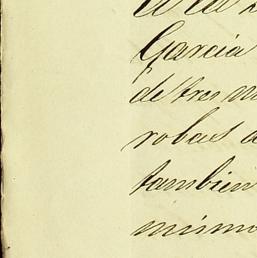 a la
Garcia
de tres mi
robas a
tambien
mismo